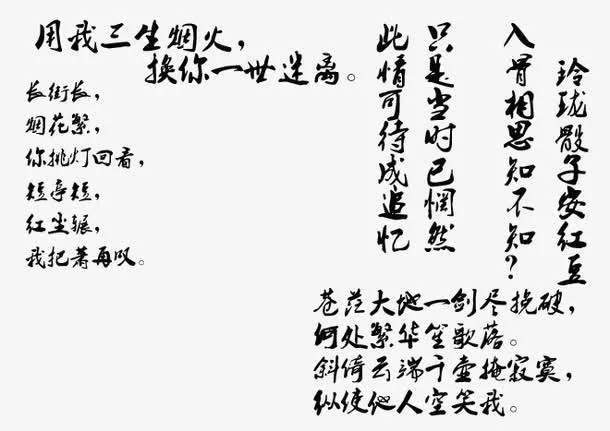 用我三生烟火，
换你一世迷离。
长街长，
烟花繁，
你挑灯回看，
短亭短，
红尘辗，
我把萧再叹。
此情可待成追忆
只是当时已惘然
玲珑骰子安红豆
入骨相思知不知？
苍茫大地一剑尽挽破，
何处繁华笙歌落。
斜倚云端千壶掩寂寞，
纵使他人空笑我。